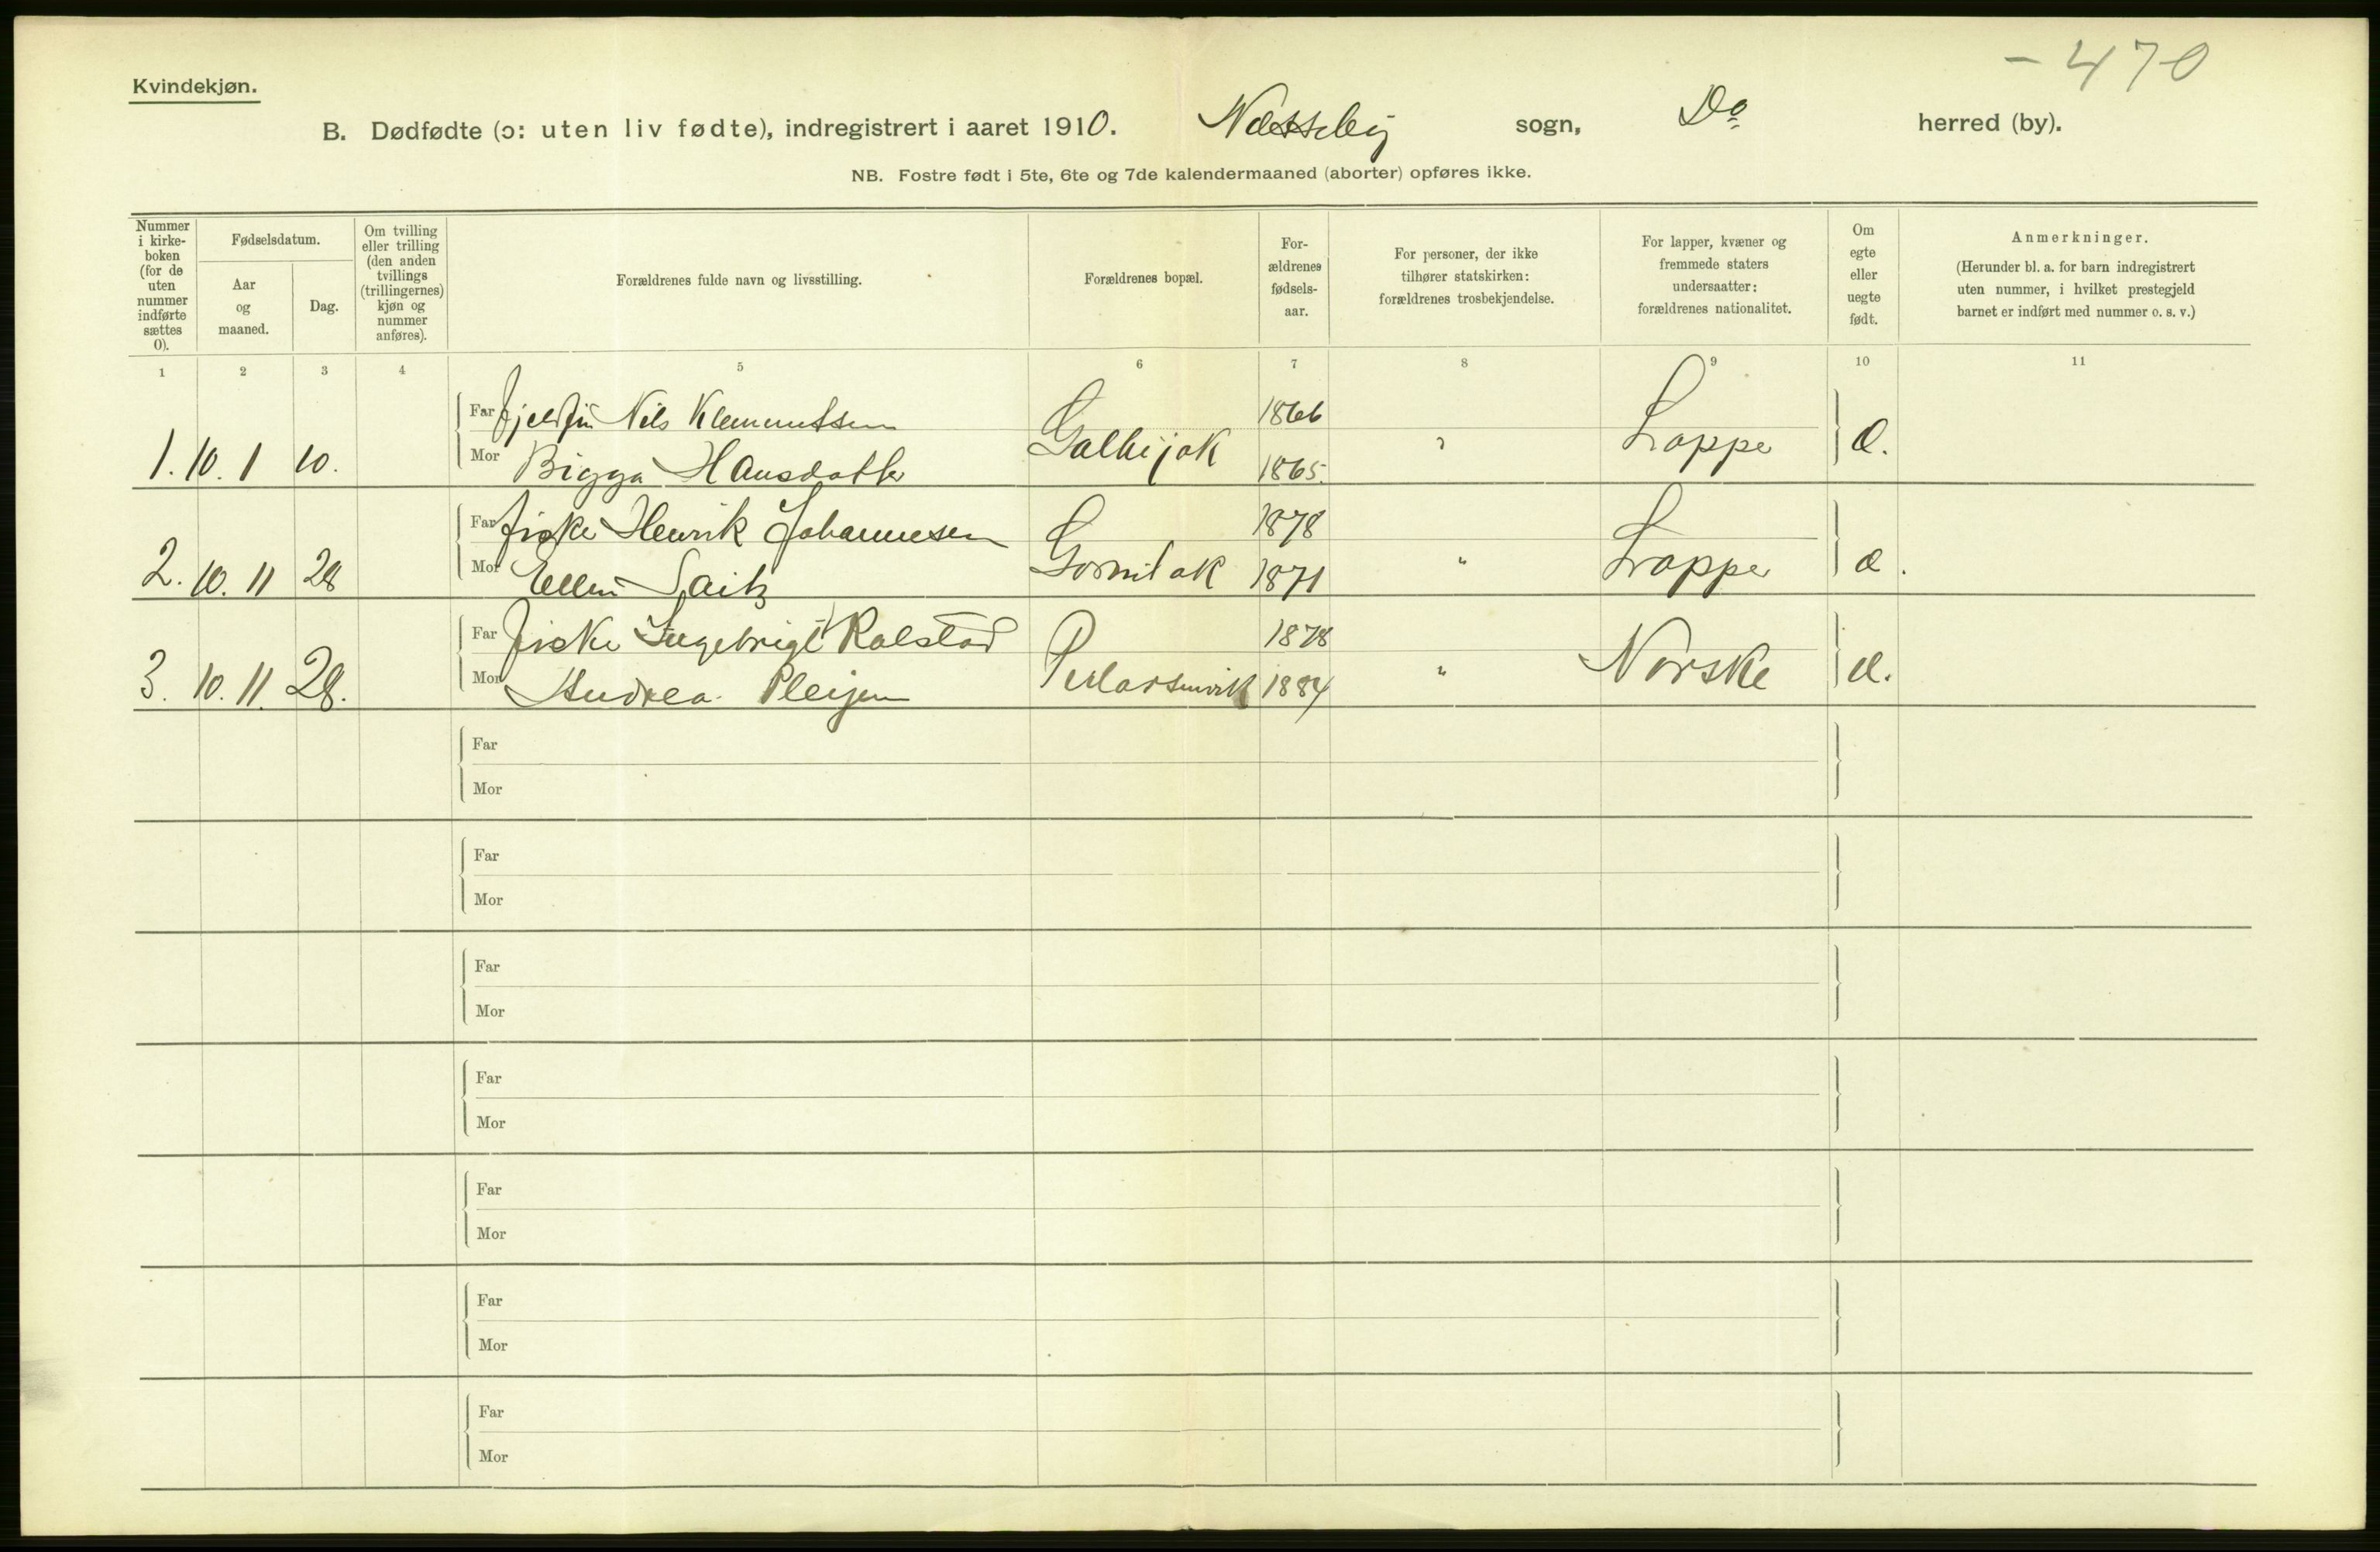 - 470
Kvindekjøn.
B. Dødfødte (ɔ: uten liv fødte), indregistrert i aaret 1910. Nesseby sogn, Do herred (by).
NB. Fostre født i 5te, 6te og 7de kalendermaaned (aborter) opføres ikke.
Nummer i kirke-boken (for de uten nummer indførte sættes 0).
Fødselsdatum.
Aar og maaned.
Dag.
Om tvilling eller trilling (den anden tvillings (trillingernes) kjøn og nummer anføres).
Forældrenes fulde navn og livsstilling.
Forældrenes bopæl.
For-ældrenes fødsels-aar.
For personer, der ikke tilhører statskirken: forældrenes trosbekjendelse.
For lapper, kvæner og fremmede staters undersaatter: forældrenes nationalitet.
Om egte eller uegte født.
Anmerkninger.
(Herunder bl. a. for barn indregistrert uten nummer, i hvilket prestegjeld barnet er indført med nummer o. s. v.)
1 2 3 4 5 6 7 8 9 10 11
Far Nils Klemmetsen 1866
1. 10. 1 10. Mor Bigga Hansdatter 1865. " Lappe
Far fisker Henrik Johannesen 1878
2. 10. 11 28 Mor Ellen 1871 " Lappe
Far fisker Ingebrigt Rolstad 1878
3. 10. 11. 28. Mor Andrea 1884 " Norske
Far
Mor
Far
Mor
Far
Mor
Far
Mor
Far
Mor
Far
Mor
Far
Mor